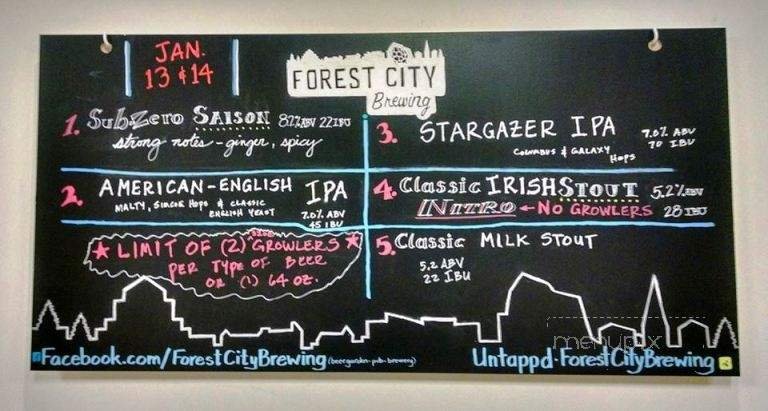 JAN.
13 & 14
FOREST CITY
Brewing
1. SubZero SAISON 8.2% ABV 22 IBU
strong notes - ginger, spicy
2. AMERICAN-ENGLISH IPA
MALTY, SIMCOE HOPS & CLASSIC
ENGLISH YEAST
7.0% ABV
45 IBU
★ LIMIT OF (2) GROWLERS ★
PER TYPE OF BEER
OR (1) 64 OZ.
3. STARGAZER IPA
7.0% ABV
70 IBU
COLUMBUS & GALAXY
HOPS
4. Classic IRISH STOUT 5.2% ABV
NITRO ← NO GROWLERS 28 IBU
5. Classic MILK STOUT
5.2 ABV
22 IBU
menupix
Facebook.com/ForestCityBrewing (beergarden-pub-brewery)
Untappd-ForestCityBrewing